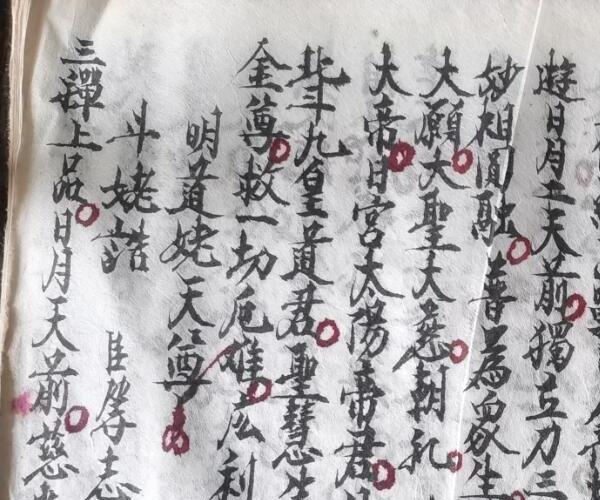 遊日月二天前獨立刀三
妙相圓融普爲衆生
大願大聖大慈朝礼
大帝日宮太陽帝君
北斗九皇道君聖慧生
金尊救一切厄难広利
明道姥天尊
斗姥誥
三彈上品日月天前慈